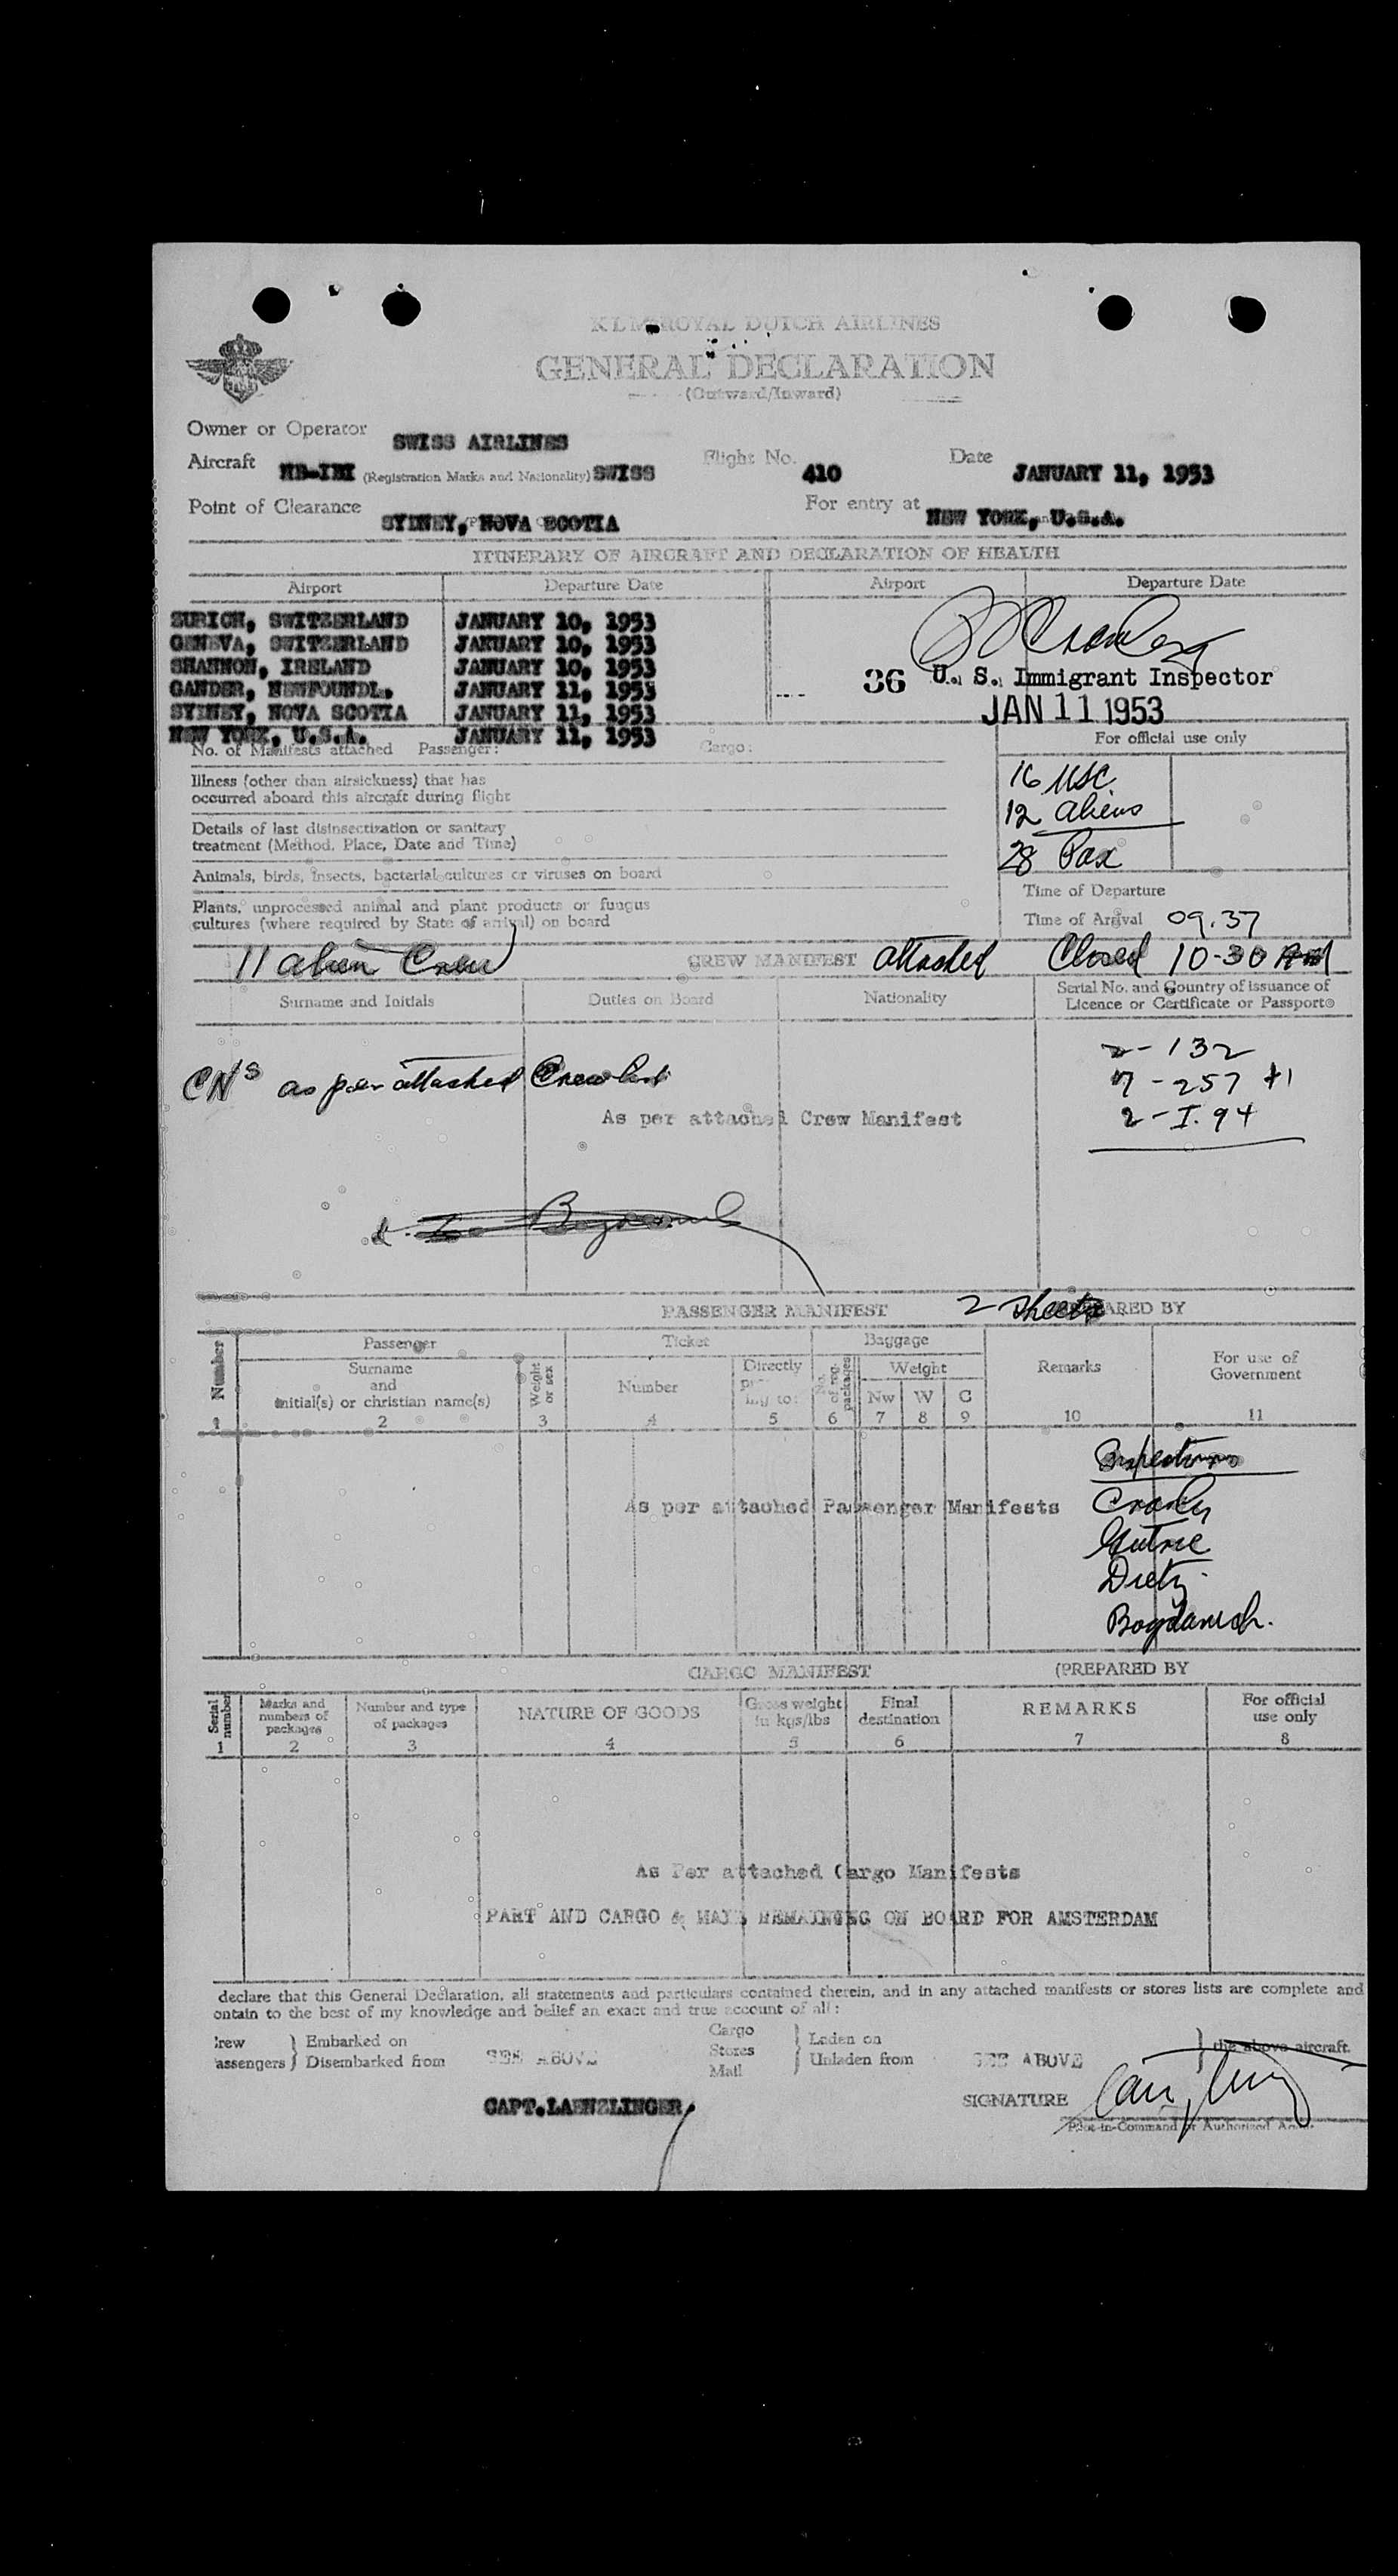 KLM-ROYAL DUTCH AIRLINES
GENERAL DECLARATION
(Outward/Inward)
Owner or Operator SWISS AIRLINES
Aircraft HB-IBI (Registration Marks and Nationality) SWISS Flight No. 410 Date JANUARY 11, 1953
Point of Clearance SYDNEY, NOVA SCOTIA For entry at NEW YORK, U.S.A.
ITINERARY OF AIRCRAFT AND DECLARATION OF HEALTH
Airport Departure Date Airport Departure Date
ZURICH, SWITZERLAND JANUARY 10, 1953
GENEVA, SWITZERLAND JANUARY 10, 1953
SHANNON, IRELAND JANUARY 10, 1953
GANDER, NEWFOUNDL. JANUARY 11, 1953
36 U. S. Immigrant Inspector
SYDNEY, NOVA SCOTIA JANUARY 11, 1953
JAN 11 1953
NEW YORK, U.S.A. JANUARY 11, 1953
No. of Manifests attached Passenger: Cargo:
For official use only
16 USC
12 aliens
28 Pax
Illness (other than airsickness) that has
occurred aboard this aircraft during flight
Details of last disinsectization or sanitary
treatment (Method, Place, Date and Time)
Animals, birds, insects, bacterial cultures or viruses on board
Plants, unprocessed animal and plant products or fungus
cultures (where required by State of arrival) on board
Time of Departure
Time of Arrival 09.37
11 alien Crew CREW MANIFEST attached Closed 10-30 AM
Surname and Initials Duties on Board Nationality Serial No. and Country of issuance of
Licence or Certificate or Passport
CN's as per attached Crew list
2-132
7-257 +1
2-I.94
As per attached Crew Manifest
PASSENGER MANIFEST 2 sheets PREPARED BY
Number Passenger Ticket Baggage Remarks For use of
Government
Surname
and
initial(s) or christian name(s)
Weight or sex
Number
Directly
ing to:
No. of reg. packages
Weight
Nw W C
1 2 3 4 5 6 7 8 9 10 11
As per attached Passenger Manifests
Inspectors
Crowley
Gutrie
Dietz
Bogdanich.
CARGO MANIFEST (PREPARED BY
Serial number
Marks and
numbers of
packages
Number and type
of packages
NATURE OF GOODS
Gross weight
in kgs/lbs
Final
destination
REMARKS
For official
use only
1 2 3 4 5 6 7 8
As Per attached Cargo Manifests
PART AND CARGO & MAIL REMAINING ON BOARD FOR AMSTERDAM
declare that this General Declaration, all statements and particulars contained therein, and in any attached manifests or stores lists are complete and
ontain to the best of my knowledge and belief an exact and true account of all:
rew
assengers
Embarked on
Disembarked from
SEE ABOVE
Cargo
Stores
Mail
Laden on
Unladen from
SEE ABOVE
the above aircraft.
CAPT. LAENZLINGER.
SIGNATURE
Pilot-in-Command or Authorized Agent